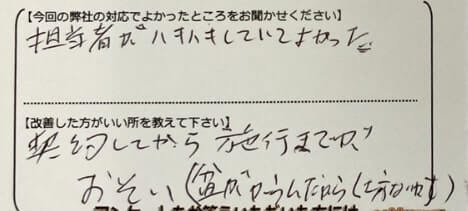 【今回の弊社の対応でよかったところをお聞かせください】
担当者がハキハキしていてよかった。
【改善した方がいい所を教えて下さい】
契約してから施行までが、
おそい(盆がからんだから